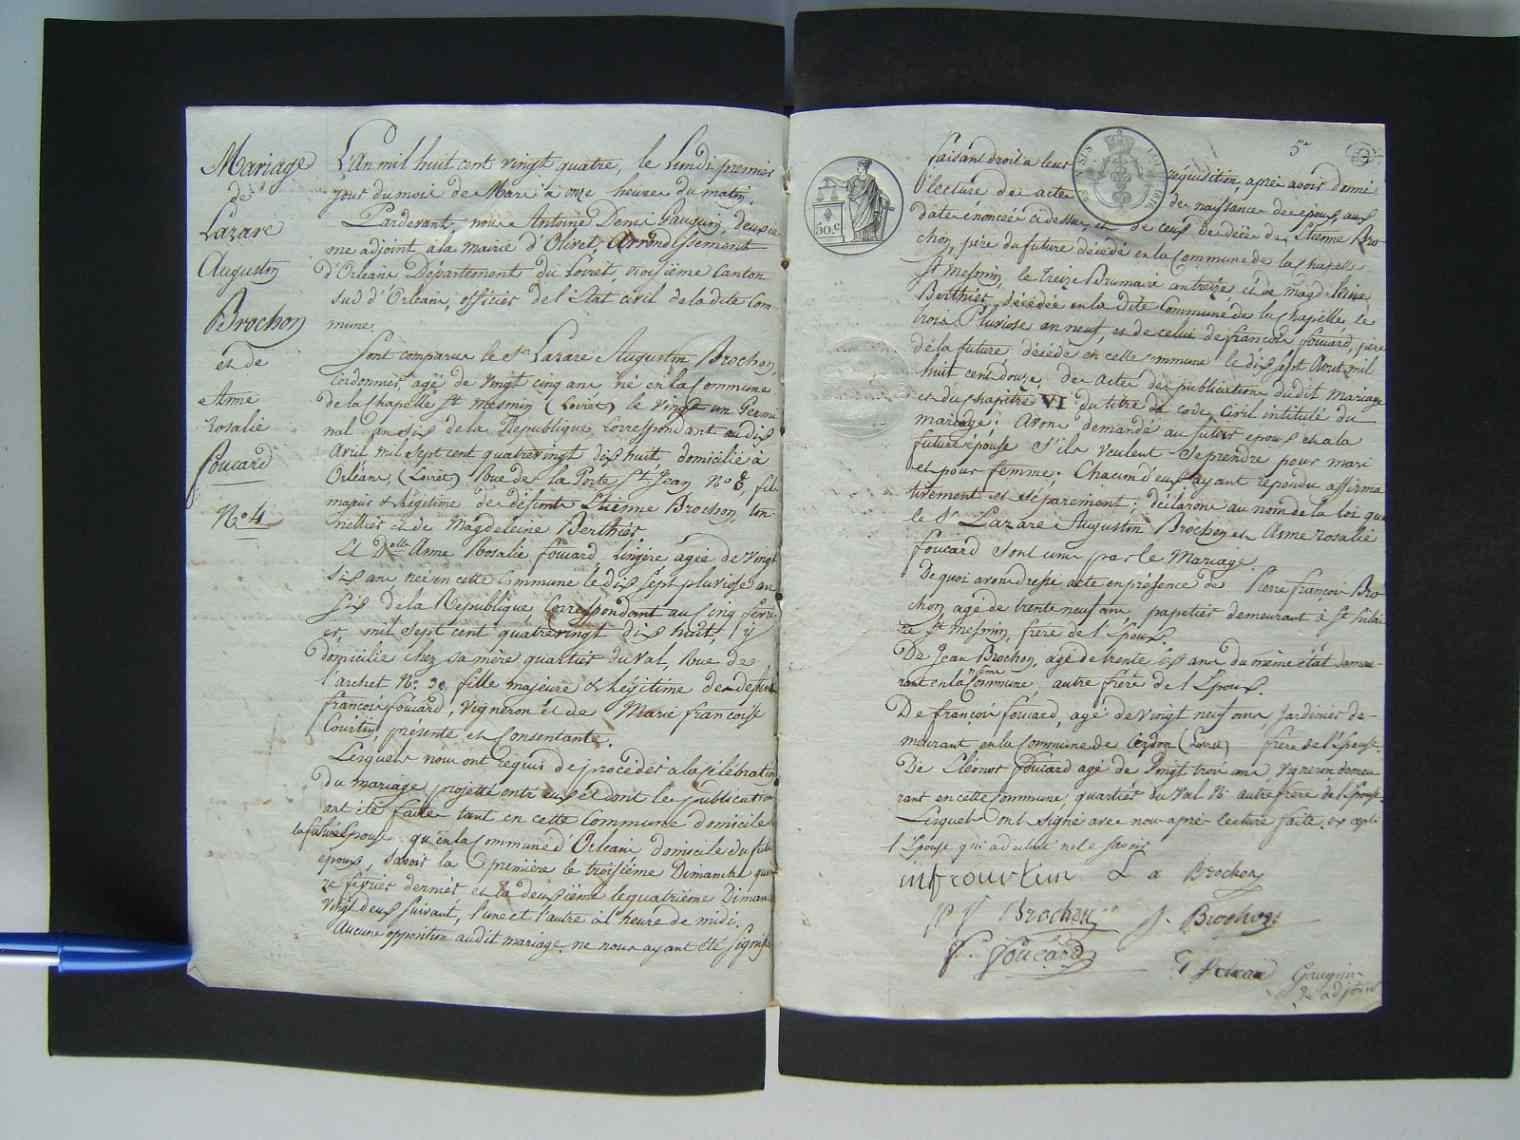 Mariage
de
Lazare
Augustin
Brochon
et de
Anne
Rosalie
Foucard
N.o 4
L'An mil huit cent vingt quatre, le lundi premier
jour du mois de Mars à onze heures du matin.
Pardevant, nous Antoine Denis Gauguin, deuxie
me adjoint à la mairie d'Olivet, Arrondissement
d'Orléans Département du Loiret, troisième Canton
sud d'Orléans, officier de l'état civil de la dite Com-
mune.
Sont comparus le Sr. Lazare Augustin Brochon,
Cordonnier, agé de vingt cinq ans né en la Commune
de la Chapelle St. Mesmin (Loiret) le vingt un Germi
nal an six de la République, correspondant au dix
Avril mil sept cent quatrevingt dix huit domicilié à
Orléans, (Loiret) Rue de la Porte St. Jean No 8, fils
majeur & légitime de défunts Etienne Brochon, ton-
nellier et de Magdeleine Berthier.
Et Delle Anne Rosalie foucard lingère agée de vingt
six ans née en cette Commune le dix sept pluviose an
six de la République Correspondant au cinq fevri
er mil sept cent quatrevingt dix huit, y
domicilie chez sa mère quartier du val, Rue de
l'archet No. 30, fille majeure & légitime de defunt
françois foucard, vigneron et de Marie françoise
Courtin, présente et Consentante.
Lesquels nous ont requis de procéder a la célébration
du mariage projetté entre eux et dont les publications
ont été faites tant en cette Commune domicile de
la future Epouse, qu'en la Commune d'Orléans domicile du futur
epoux, savoir la première le troisième Dimanche quin
ze février dernier et la deuxième le quatrième Dimanche
vingt deux suivant, l'une et l'autre à l'heure de midi.
Aucune opposition audit mariage ne nous ayant été signifiée
5e
faisant droit a leur réquisition, après avoir donné
lecture des actes de naissance des epoux aux
dates énoncées ci dessus, et de ceux de décès de Etienne Bro-
chon, père du future décédé en la Commune de la chapelle
St. Mesmin, le treize Brumaire an treize et de Magdeleine
Berthier, décédée en la dite Commune de la chapelle le
trois Pluviose an neuf, et de celui de françois foucard, père
de la future décédé en cette commune le dix sept Aout mil
huit cent douze, des actes de publication dudit Mariage
et du chapitre VI du titre du code Civil intitulé du
mariage; Avons demandé au futur epoux et a la
future épouse s'ils veulent se prendre pour mari
et pour femme; Chacun d'eux ayant répondu affirma
tivement et séparément; déclarons au nom de la loi que
le Sr. Lazare Augustin Brochon et Anne rosalie
foucard sont unis par le Mariage.
De quoi avons dressé acte en présence de Pierre françois Bro-
chon agé de trente neuf ans papetier demeurant à St. hilai
re St. Mesmin, frère de l'Epoux.
De Jean Brochon, agé de trente six ans du même état demeu-
rant en la même Commune, autre frère de l'Epoux.
De françois foucard, agé de vingt neuf ans Jardinier de-
meurant en la Commune de Cerdon (Loiret) frère de l'Epouse.
De Eléonor Foucard agé de vingt trois ans, vigneron demeu
rant en cette Commune, quartier du Val No. autre frère de l'Epouse.
Lesquels ont signé avec nous après lecture faite, excepté
l'Epouse qui a déclaré ne le savoir
mfcourtin L a Brochon
P f Brochon J. Brochon
F. Foucard
Gauguin
2e adjoint
50.c